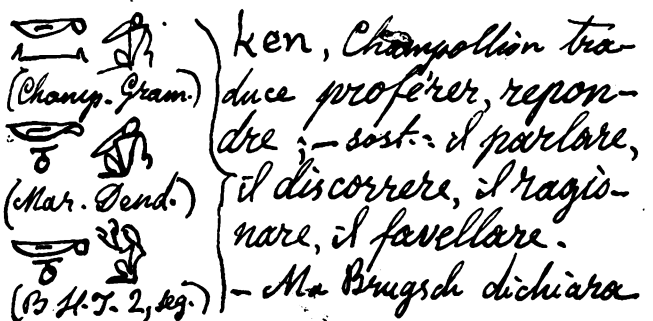 (Champ. Gram.)
(Mar. Dend.)
(B. H. I. 2, seg.)
ken, Champollion tra-
duce proférer, repon-
dre; — sost.: il parlare,
il discorrere, il ragio-
nare, il favellare.
— Ma Brugsch dichiara